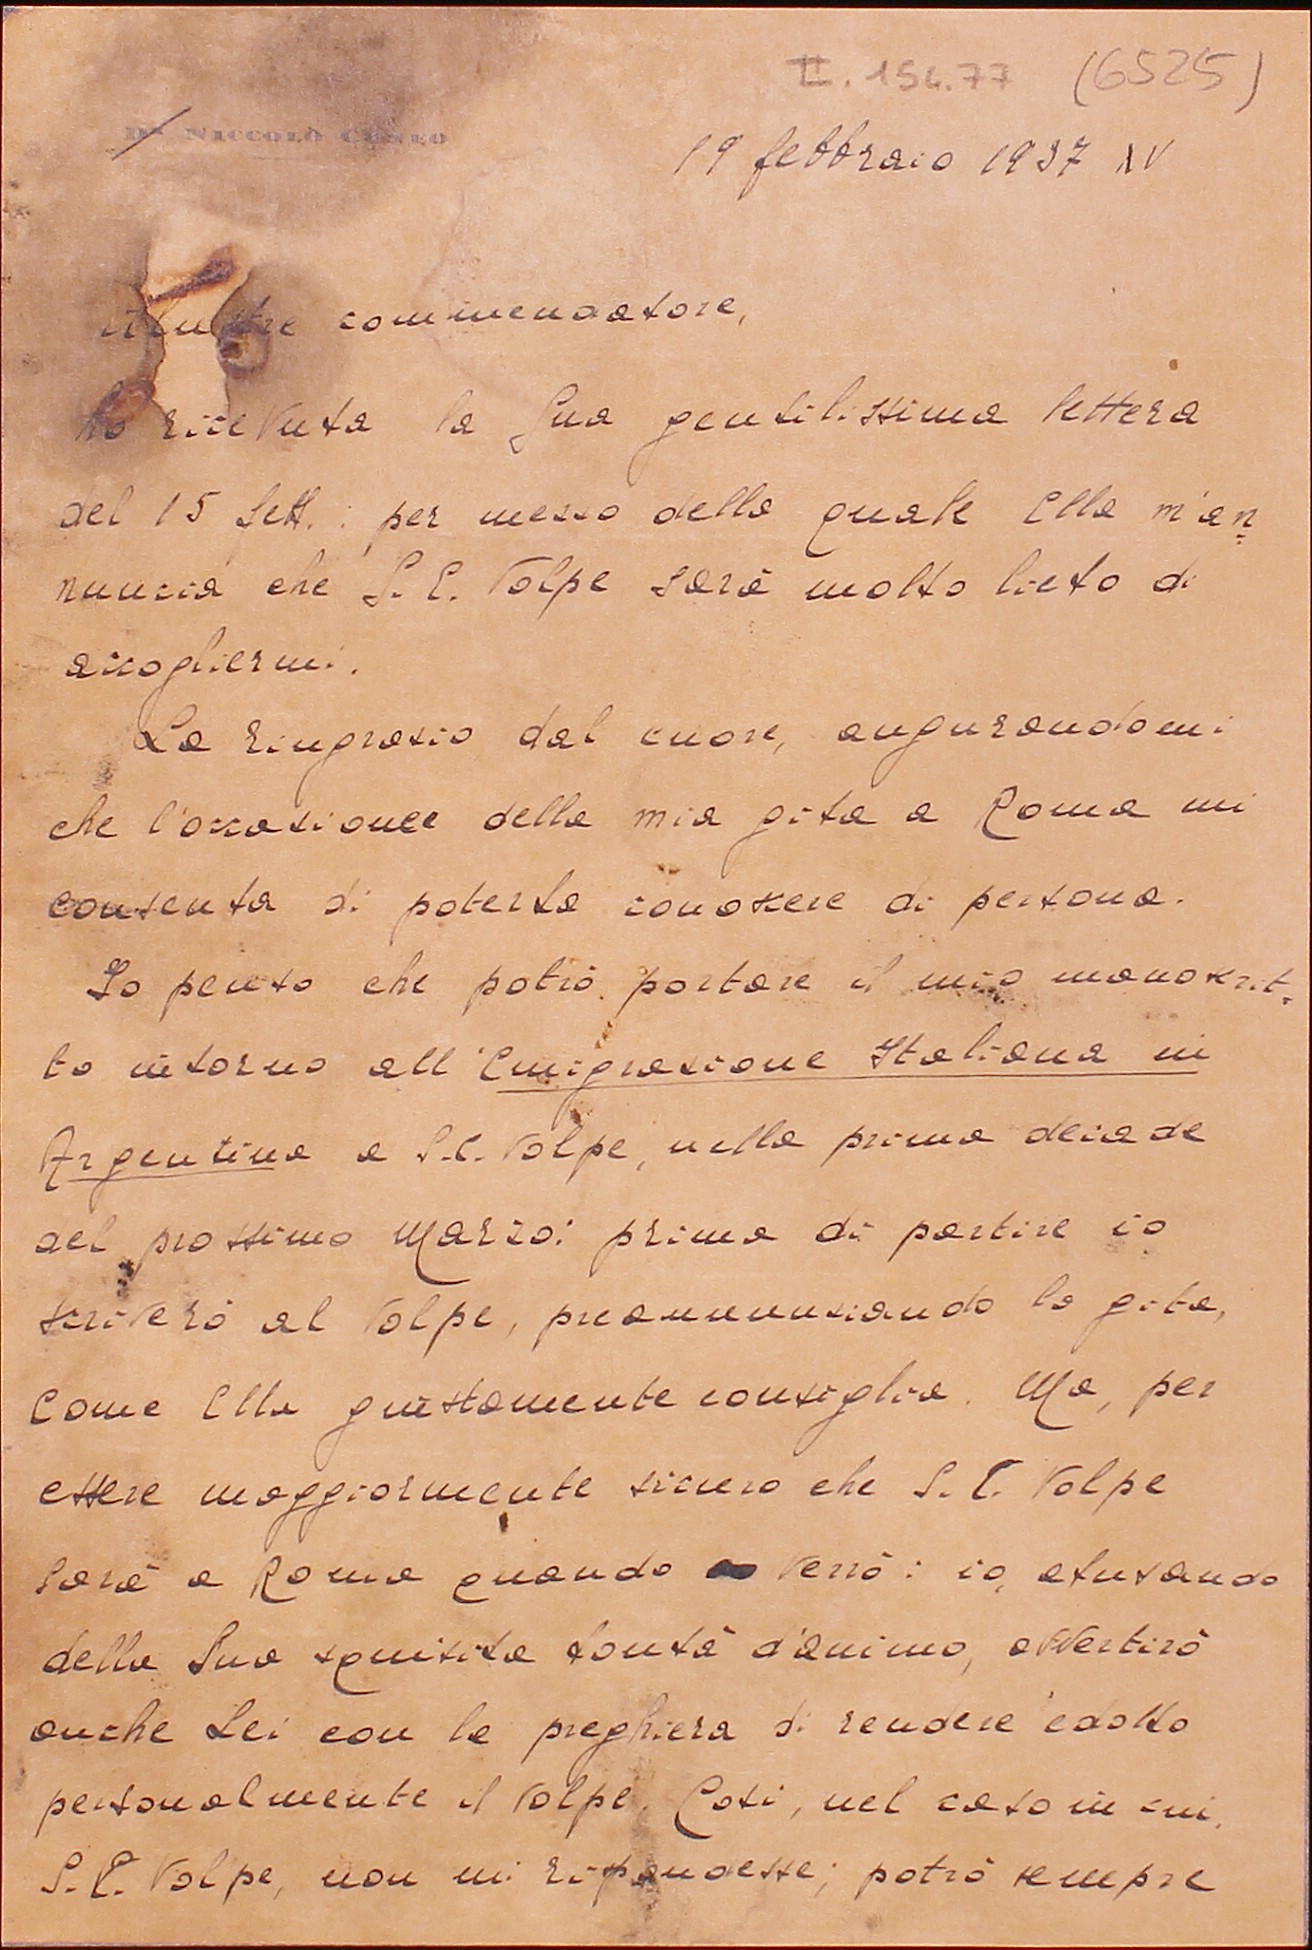 II. 154.77 (6525)
Dr. NICCOLÒ CUNEO
19 febbraio 1937 XV
commendatore,
ho ricevuta la Sua gentilissima lettera
del 15 : per mezzo della quale Ella m'an=
nuncia che S. E. Volpe sarà molto lieto di
accogliermi.
La ringrazio dal cuore, augurandomi
che l'occasione della mia gita a Roma mi
consenta di poterla conoscere di persona.
Io penso che potrò portare il mio manoscrit=
to intorno all'Emigrazione Italiana in
Argentina a S.E. Volpe, nella prima decade
del prossimo Marzo: prima di partire io
scriverò al Volpe, preannunziando la gita,
come Ella giustamente consiglia. Ma, per
essere maggiormente sicuro che S. E. Volpe
sarà a Roma quando verrò: io, abusando
della Sua squisita bontà d'animo, avvertirò
anche Lei con la preghiera di rendere edotto
personalmente il Volpe. Così, nel caso in cui,
S. E. Volpe, non mi rispondesse; potrò sempre